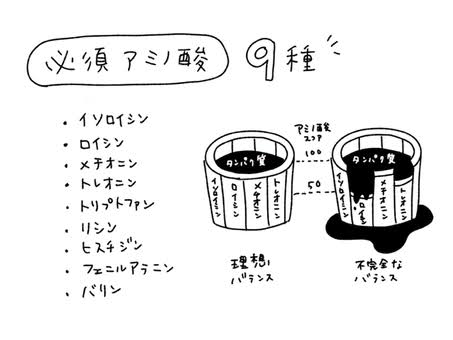 必須アミノ酸 9種
・イソロイシン
・ロイシン
・メチオニン
・トレオニン
・トリプトファン
・リシン
・ヒスチジン
・フェニルアラニン
・バリン
アミノ酸
スコア
100
50
タンパク質
イソロイシン
ロイシン
メチオニン
トレオニン
理想
バランス
タンパク質
イソロイシン
ロイシン
メチオニン
トレオニン
不完全な
バランス